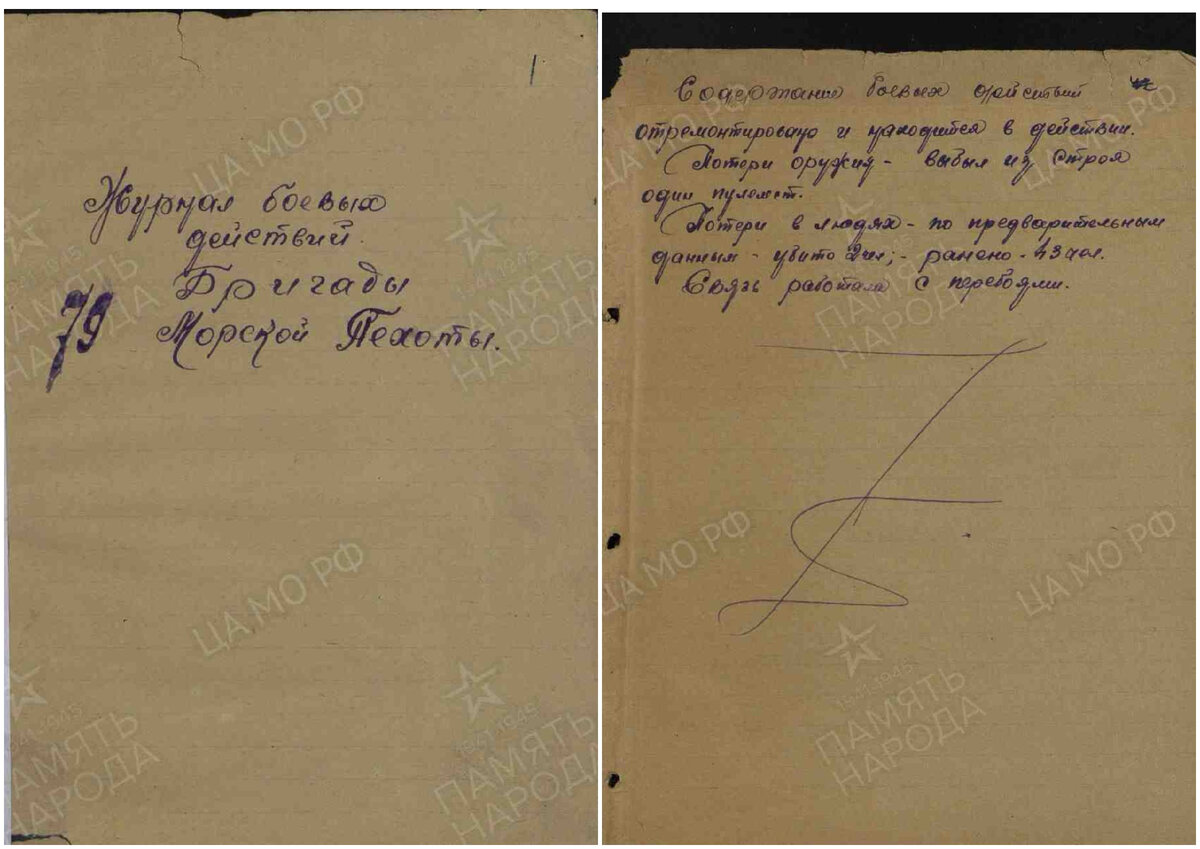 1
Журнал боевых
действий
Бригады
79 Морской Пехоты.
Содержание боевых действий
отремонтировано и находится в действии.
Потери оружия - выбыл из строя
один пулемет.
Потери в людях - по предварительным
данным - убито 2 чел; - ранено - 43 чел.
Связь работала с перебоями.
ЦА МО РФ
1941-1945
ПАМЯТЬ
НАРОДА